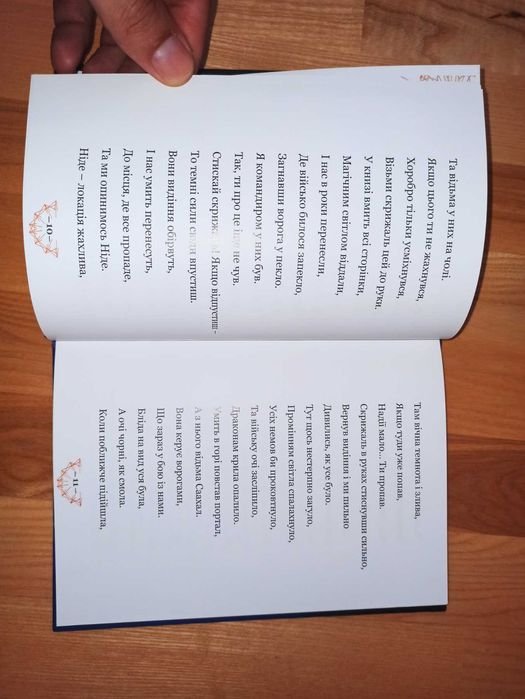 Та відьма у них на чолі.
Якщо цього ти не жахнувся,
Хоробро тільки усміхнувся,
Візьми скрижаль цей до руки.
У книзі вмить всі сторінки,
Магічним світлом віддали,
І нас в роки перенесли,
Де військо билося запекло,
Загнавши ворога у пекло.
Я командиром у них був.
Так, ти про це іще не чув.
Стискай скрижаль! Якщо відпустиш –
То темні сили впустиш.
Вони видіння обірвуть,
І нас умить перенесуть,
До місця, де все пропаде,
Та ми опинимось Ніде.
Ніде – локація жахлива,
– 10 –
Там вічна темнота і злива,
Якщо туди уже попав,
Надії мало... Ти пропав.
Скрижаль в руках стиснувши сильно,
Вернув видіння і ми пильно
Дивились, як усе було.
Тут щось нестерпно загуло,
Промінням світла спалахнуло,
Усіх немов би проковтнуло,
Та війську очі засліпило,
Драконам крила опалило.
Умить в горі повстав портал,
А з нього відьма Савхал.
Вона керує ворогами,
Що зараз у бою із нами.
Бліда на вид уся була,
А очі чорні, як смола.
Коли поближче підійшла,
– 11 –